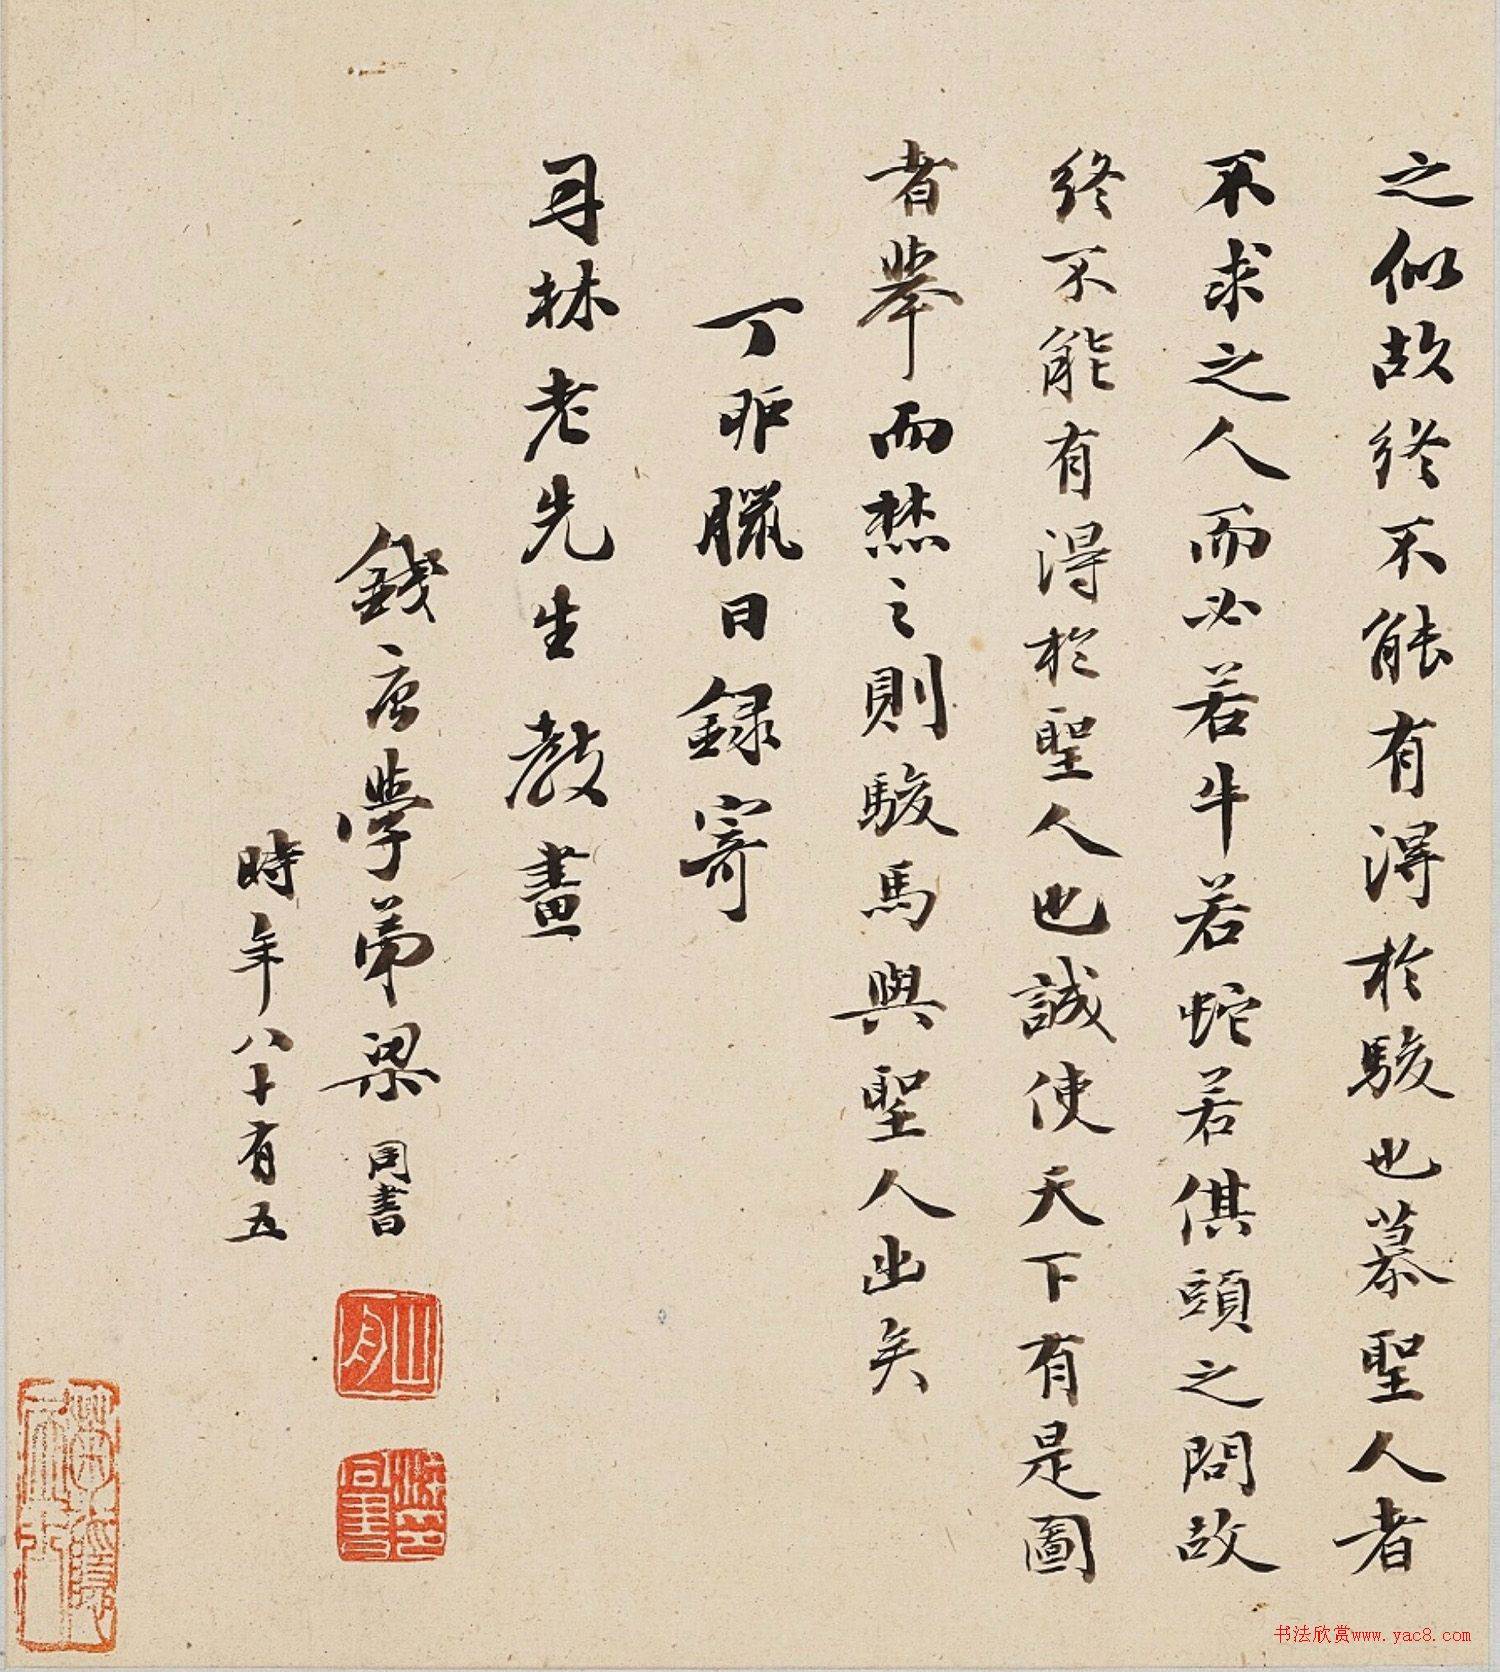 之似故終不能有得於駿也慕聖人者
不求之人而必若牛若蛇若倛頭之問故
終不能有得於聖人也誠使天下有是圖
者舉而焚之則駿馬與聖人出矣
丁卯臘日録寄
林老先生教畫
錢唐學弟梁同書
時年八十有五
山舟
梁印同書
书法欣赏www.yac8.com